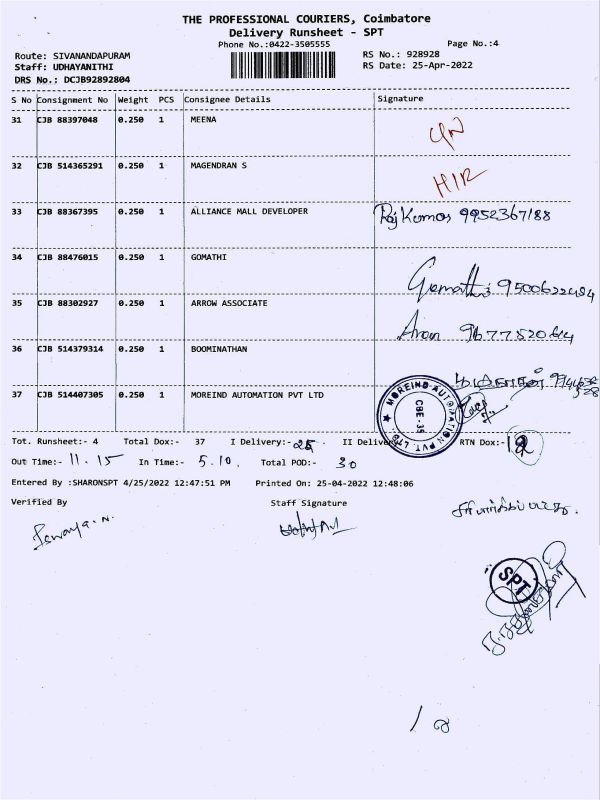 THE PROFESSIONAL COURIERS, Coimbatore
Delivery Runsheet - SPT
Phone No.:0422-3505555
Page No.:4
Route: SIVANANDAPURAM
RS No.: 928928
Staff: UDHAYANITHI
RS Date: 25-Apr-2022
DRS No.: DCJB92892804
S No Consignment No Weight PCS Consignee Details Signature
31 CJB 88397048 0.250 1 MEENA
32 CJB 514365291 0.250 1 MAGENDRAN S
33 CJB 88367395 0.250 1 ALLIANCE MALL DEVELOPER Raj Kumar 9952367188
34 CJB 88476015 0.250 1 GOMATHI Gomathi 9500622484
35 CJB 88302927 0.250 1 ARROW ASSOCIATE Arun 9677520614
36 CJB 514379314 0.250 1 BOOMINATHAN
37 CJB 514407305 0.250 1 MOREIND AUTOMATION PVT LTD
MOREIND AUTOMATION PVT. LTD. CBE-35
Tot. Runsheet:- 4 Total Dox:- 37 I Delivery:- 25 II Delivery RTN Dox:- 12
Out Time:- 11.15 In Time:- 5.10. Total POD:- 30
Entered By :SHARONSPT 4/25/2022 12:47:51 PM Printed On: 25-04-2022 12:48:06
Verified By Staff Signature
SPT